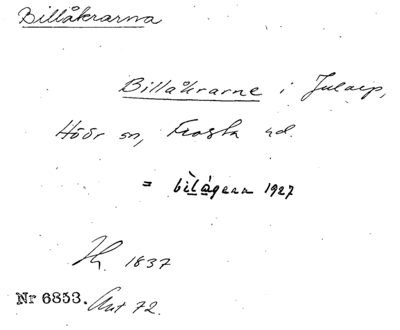 Billåkrarna
Billåkrarne i Jularp,
Höör sn, Frosta hd.
= bìlágena 1927
1837
Nr 6853. Ant 72.